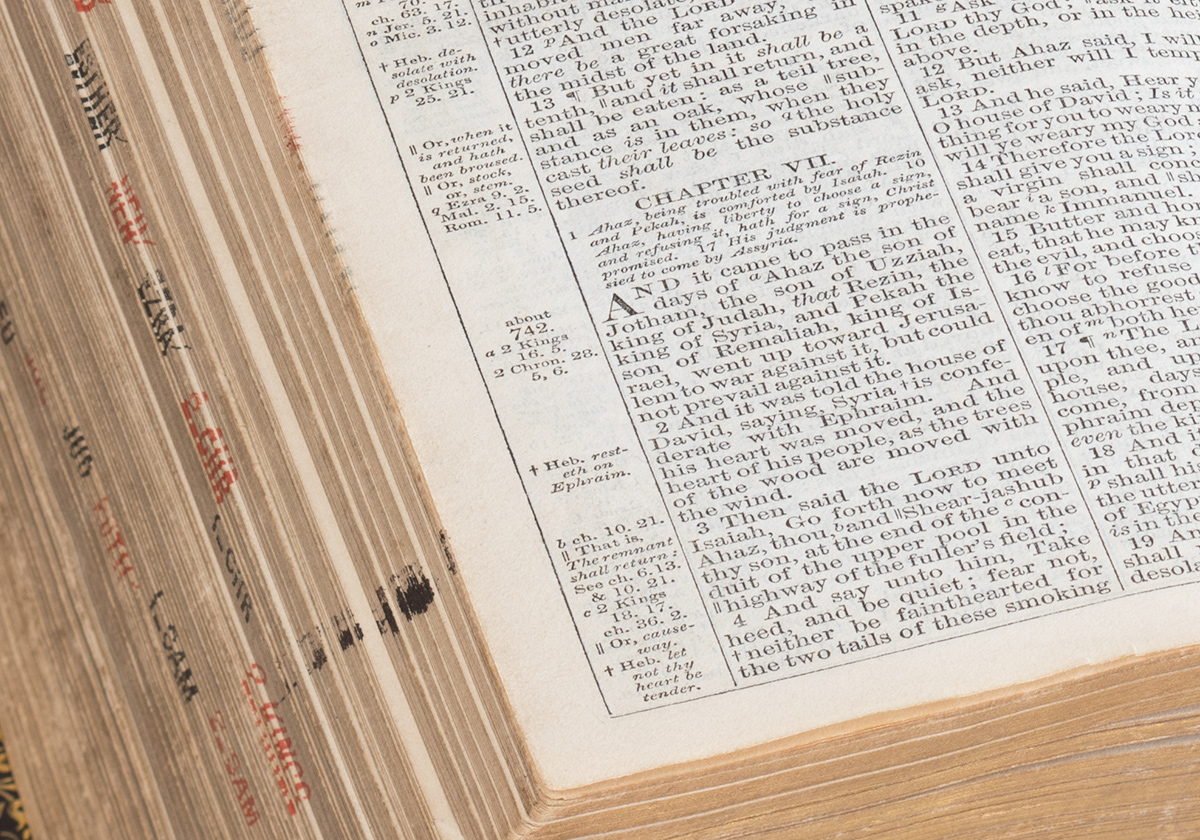 ch. 63. 17.
n Jer. 5. 21.
o Mic. 3. 12.
† Heb. de-
solate with
desolation.
p 2 Kings
25. 21.
|| Or, when it
is returned,
and hath
been broused.
|| Or, stock,
or, stem.
q Ezra 9. 2.
Mal. 2. 15.
Rom. 11. 5.
about
742.
a 2 Kings
16. 5.
2 Chron. 28.
5, 6.
† Heb. rest-
eth on
Ephraim.
b ch. 10. 21.
|| That is,
The remnant
shall return:
See ch. 6. 13.
& 10. 21.
c 2 Kings
18. 17.
ch. 36. 2.
|| Or, cause-
way.
† Heb. let
not thy
heart be
tender.
without man,
† utterly desolate,
12 p And the LORD
moved men far away,
there be a great forsaking in
the midst of the land.
13 ¶ But yet in it shall be a
tenth, || and it shall return, and
shall be eaten: as a teil tree,
and as an oak, whose || sub-
stance is in them, when they
cast their leaves: so q the holy
seed shall be the substance
thereof.
CHAPTER VII.
1 Ahaz, being troubled with fear of Rezin
and Pekah, is comforted by Isaiah. 10
Ahaz, having liberty to choose a sign,
and refusing it, hath for a sign, Christ
promised. 17 His judgment is prophe-
sied to come by Assyria.
AND it came to pass in the
days of a Ahaz the son of
Jotham, the son of Uzziah,
king of Judah, that Rezin, the
king of Syria, and Pekah the
son of Remaliah, king of Is-
rael, went up toward Jerusa-
lem to war against it, but could
not prevail against it.
2 And it was told the house of
David, saying, Syria † is confe-
derate with Ephraim. And
his heart was moved, and the
heart of his people, as the trees
of the wood are moved with
the wind.
3 Then said the LORD unto
Isaiah, Go forth now to meet
Ahaz, thou, b and || Shear-jashub
thy son, at the end of the c con-
duit of the upper pool in the
|| highway of the fuller's field;
4 And say unto him, Take
heed, and be quiet: fear not,
† neither be fainthearted for
the two tails of these smoking
11 g Ask
LORD thy God:
in the depth, or in the
above.
12 But Ahaz said, I will
ask, neither will I
LORD.
13 And he said, Hear
O house of David; Is it
thing for you to weary
will ye weary my God
14 Therefore the Lord
shall give you a sign
a virgin shall
bear i a son, and
name k Immanuel.
15 Butter and
eat, that he may
the evil, and choose
16 l For before
know to refuse
choose the
thou abhorrest
end of m both
17 ¶ n The
upon thee, and
ple, and
house, days
come, from
phraim
even the
18 And
in that
p shall
the
of
is in the
19 And
shall
ESTHER
NEH
EZRA
2_CHR
1_CHR
2_KINGS
JUG
RUTH
1_SAM
2_SAM